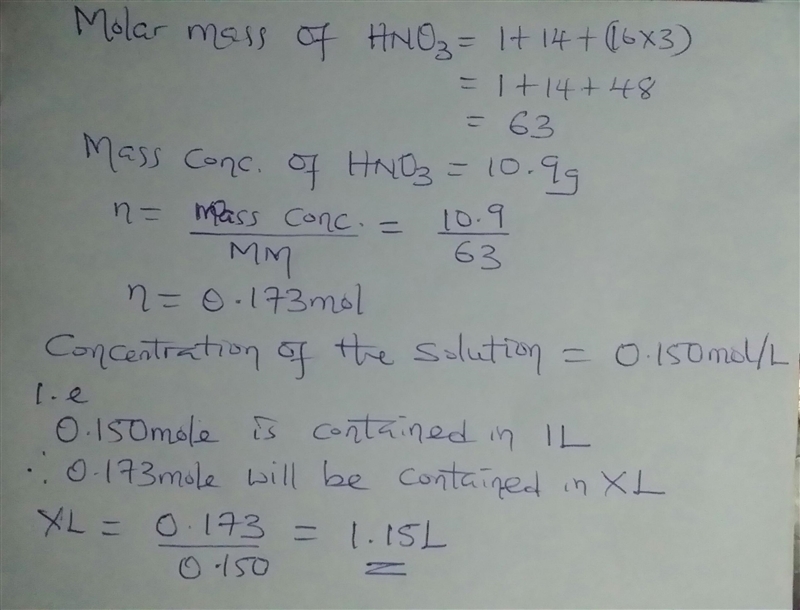 Molar mass of HNO3 = 1+14+(16×3)
= 1+14+48
= 63
Mass conc. of HNO3 = 10.9g
n = Mass conc. / MM = 10.9 / 63
n = 0.173mol
Concentration of the solution = 0.150mol/L
I.e
0.150mole is contained in 1L
∴ 0.173mole will be contained in XL
XL = 0.173 / 0.150 = 1.15L